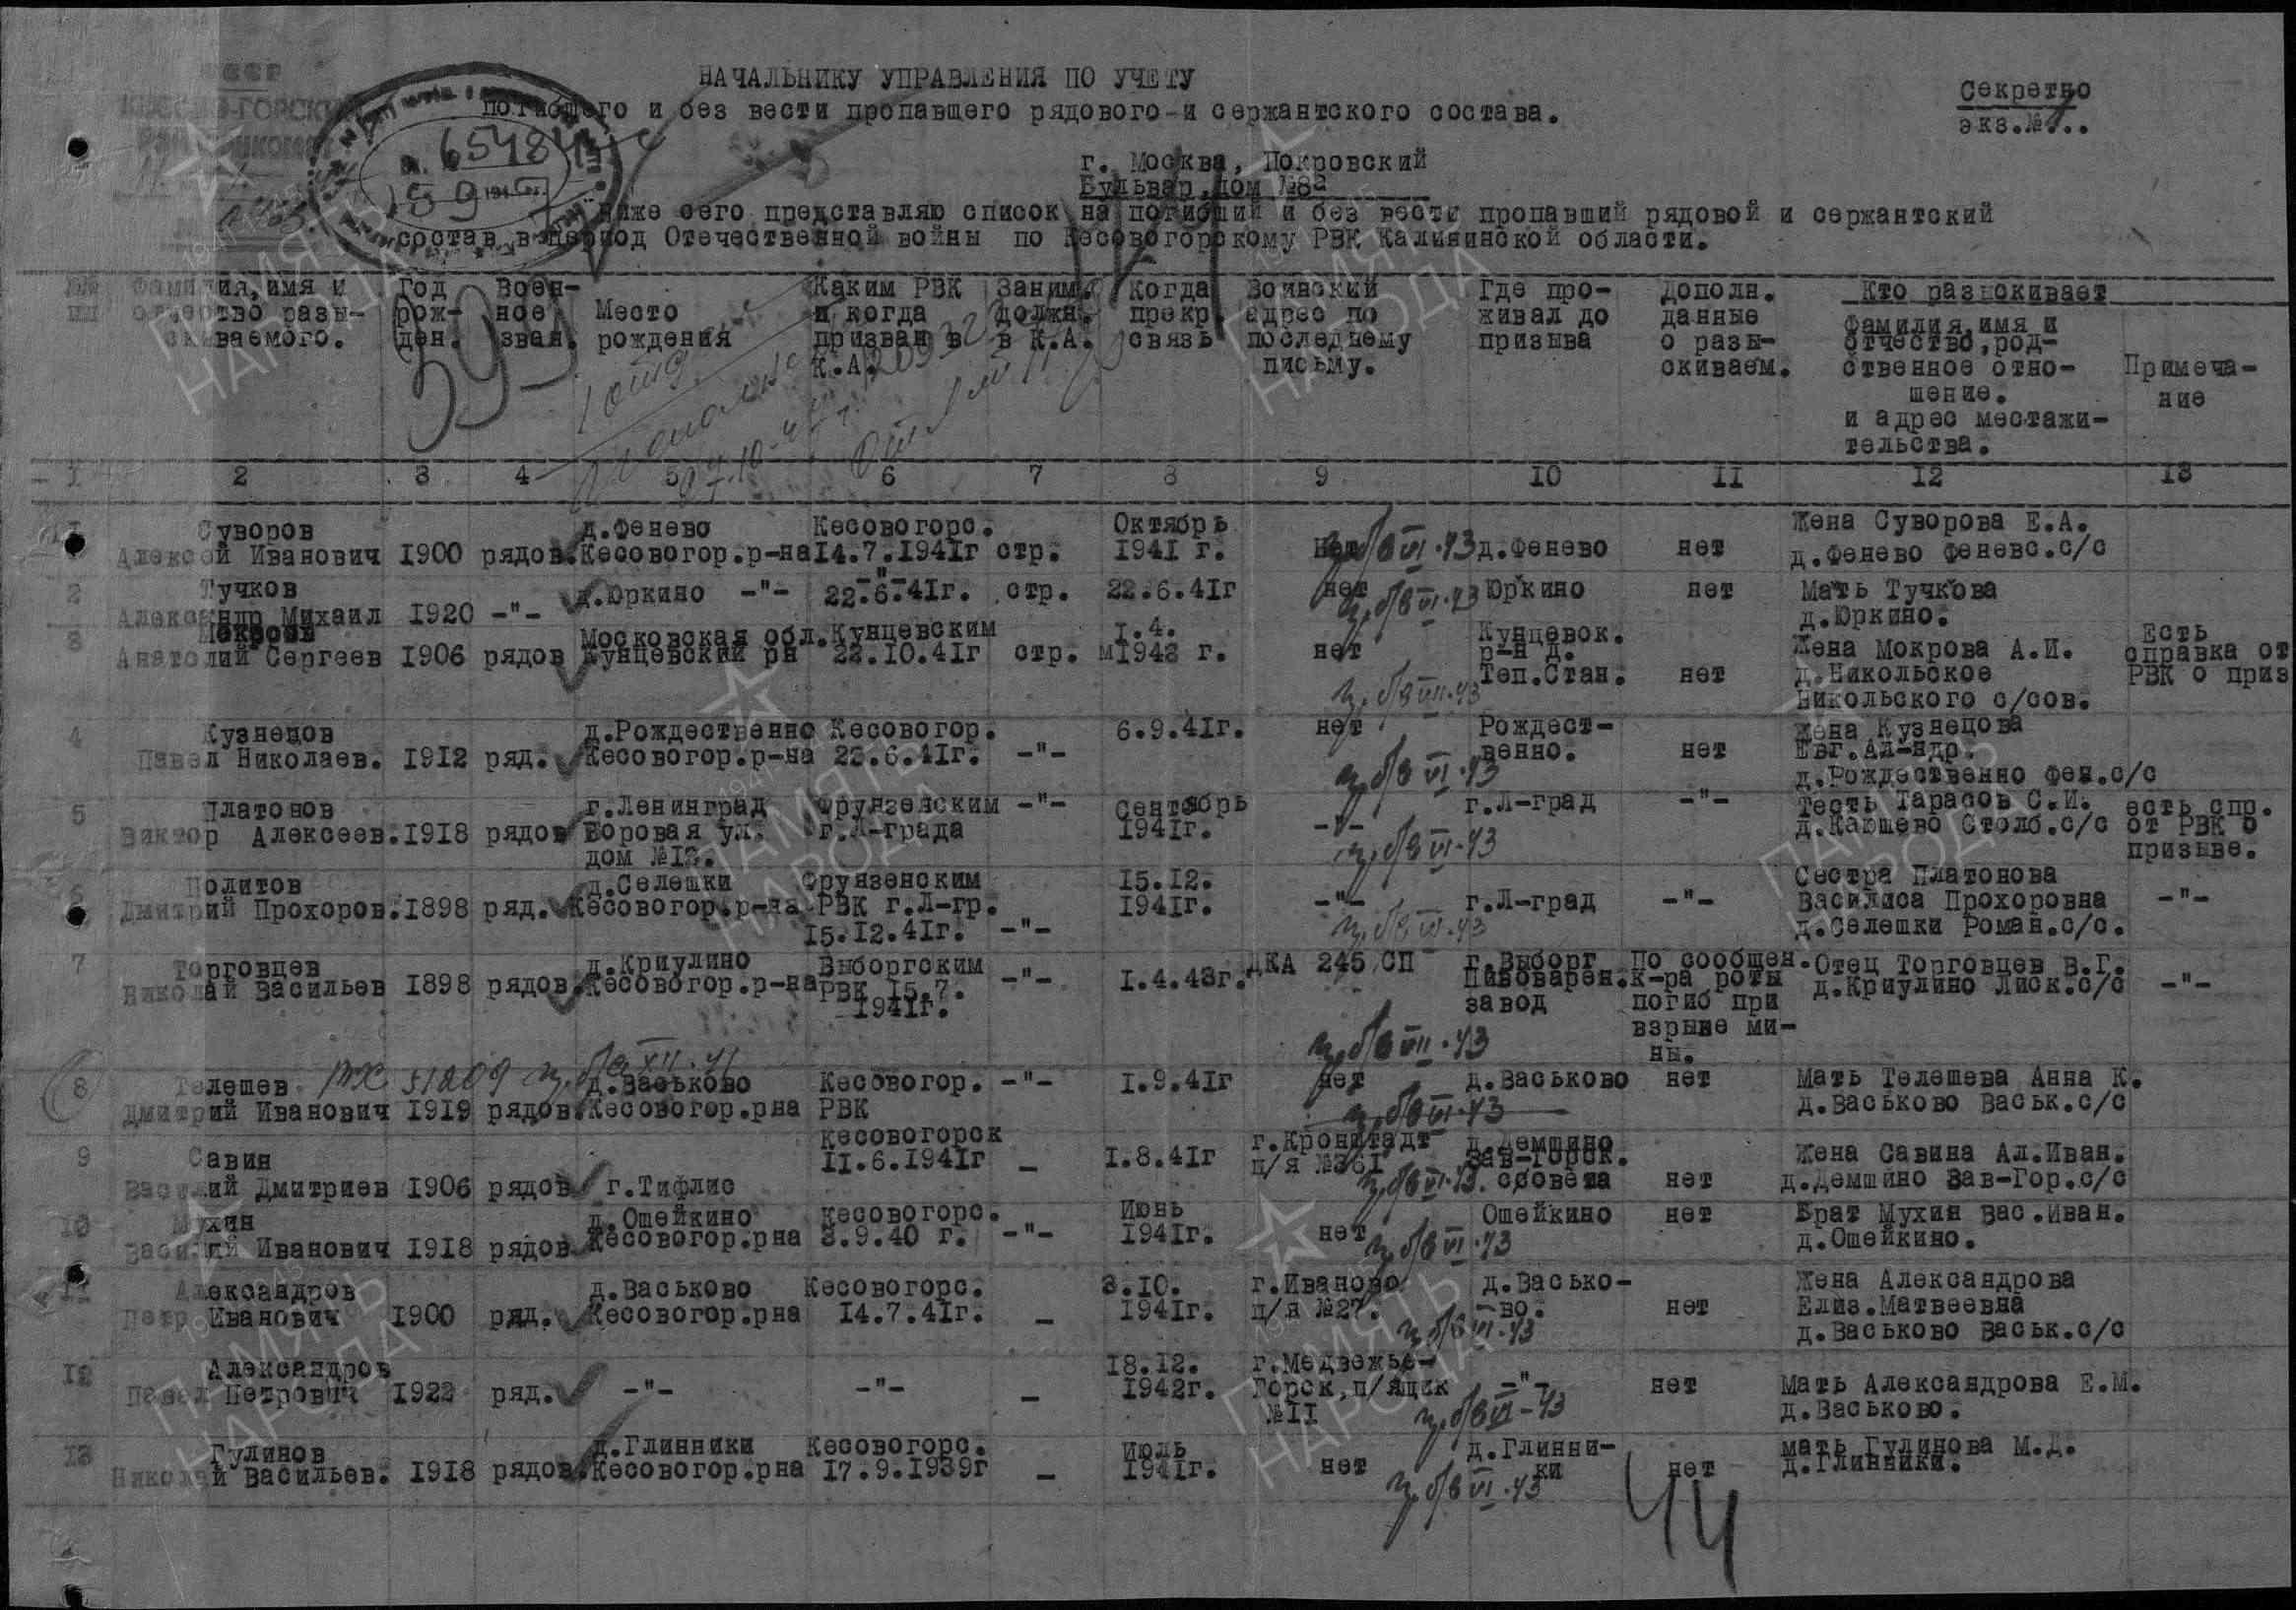 СССР
НАЧАЛЬНИКУ УПРАВЛЕНИЯ ПО УЧЕТУ
погибшего и без вести пропавшего рядового и сержантского состава.
Секретно
экз.№
65484
г. Москва, Покровский
Бульвар, дом №8а
Ниже сего представляю список на погибший и без вести пропавший рядовой и сержантский
состав в период Отечественной войны по Кесовогорскому РВК Калининской области.
№№ пп
Фамилия, имя и отчество разы-скиваемого.
Год рож-ден.
Воен-ное зван.
Место рождения
Каким РВК и когда призван в К.А.
Заним. должн. в К.А.
Когда прекр. связь
Воинский адрес по последнему письму.
Где про-живал до призыва
Дополн. данные о разы-скиваем.
Кто разыскивает
Фамилия, имя и отчество, род-ственное отно-шение. и адрес местажи-тельства.
Примеча-ние
1 2 3 4 5 6 7 8 9 10 11 12 13
1 Суворов Алексей Иванович 1900 рядов. д.Фенево Кесовогор.р-на Кесовогорс. 14.7.1941г стр. Октябрь 1941 г. нет д.Фенево нет Жена Суворова Е.А. д.Фенево Феневс.с/с
2 Тучков Александр Михаил 1920 -"- д.Юркино -"- -"- 22.6.41г. стр. 22.6.41г нет Юркино нет Мать Тучкова д.Юркино.
3 Анатолий Сергеев 1906 рядов Московская обл. Кунцевский рн Кунцевским 22.10.41г стр. 1.4. 1942 г. нет Кунцевок. р-н д. Теп.Стан. нет Жена Мокрова А.И. д.Никольское Никольского с/сов. Есть справка от РВК о приз
4 Кузнецов Павел Николаев. 1912 ряд. д.Рождественно Кесовогор.р-на Кесовогор. 23.6.41г. -"- 6.9.41г. нет Рождест-венно. нет Жена Кузнецова Евг.Ал-ндр. д.Рождественно Фен.с/с
5 Платонов Виктор Алексеев. 1918 рядов г.Ленинград Боровая ул. дом №13. Фрунзенским г.Л-града -"- Сентябрь 1941г. -"- г.Л-град -"- Тесть Тарасов С.И. д.Каюшево Столб.с/с есть спр. от РВК о призыве.
6 Политов Дмитрий Прохоров. 1898 ряд. д.Селешки Кесовогор.р-на Фрунзенским РВК г.Л-гр. 15.12.41г. -"- 15.12. 1941г. -"- г.Л-град -"- Сестра Платонова Василиса Прохоровна д.Селешки Роман.с/с. -"-
7 Торговцев Николай Васильев 1898 рядов. д.Криулино Кесовогор.р-на Выборгским РВК 15.7. 1941г. -"- 1.4.43г. ДКА 245 СП г.Выборг Пивоварен. завод По сообщен. к-ра роты погиб при взрыве ми-ны. Отец Торговцев В.Г. д.Криулино Лиск.с/с -"-
8 Телешев Дмитрий Иванович 1919 рядов. д.Васьково Кесовогор.рна Кесовогор. РВК -"- 1.9.41г нет д.Васьково нет Мать Телешева Анна К. д.Васьково Васьк.с/с
9 Савин Василий Дмитриев 1906 рядов г.Тифлис Кесовогорск 11.6.1941г - 1.8.41г г.Кронштадт п/я №361 д.Демшино Зав-Горск. ссовета нет Жена Савина Ал.Иван. д.Демшино Зав-Гор.с/с
10 Мухин Василий Иванович 1918 рядов д.Ошейкино Кесовогор.рна Кесовогорс. 3.9.40 г. -"- Июнь 1941г. нет Ошейкино нет Брат Мухин Вас.Иван. д.Ошейкино.
11 Александров Петр Иванович 1900 ряд. д.Васьково Кесовогор.рна Кесовогорс. 14.7.41г. - 3.10. 1941г. г.Иваново п/я №27. д.Васько-во. нет Жена Александрова Елиз.Матвеевна д.Васьково Васьк.с/с
12 Александров Павел Петрович 1922 ряд. -"- -"- - 18.12. 1942г. г.Медвежье-горск,п/ящик №11 -"- нет Мать Александрова Е.М. д.Васьково.
13 Гулинов Николай Васильев. 1918 рядов. д.Глинники Кесовогор.рна Кесовогорс. 17.9.1939г - Июль 1941г. нет д.Глинни-ки нет мать Гулинова М.Д. д.Глинники.
44
ПАМЯТЬ НАРОДА